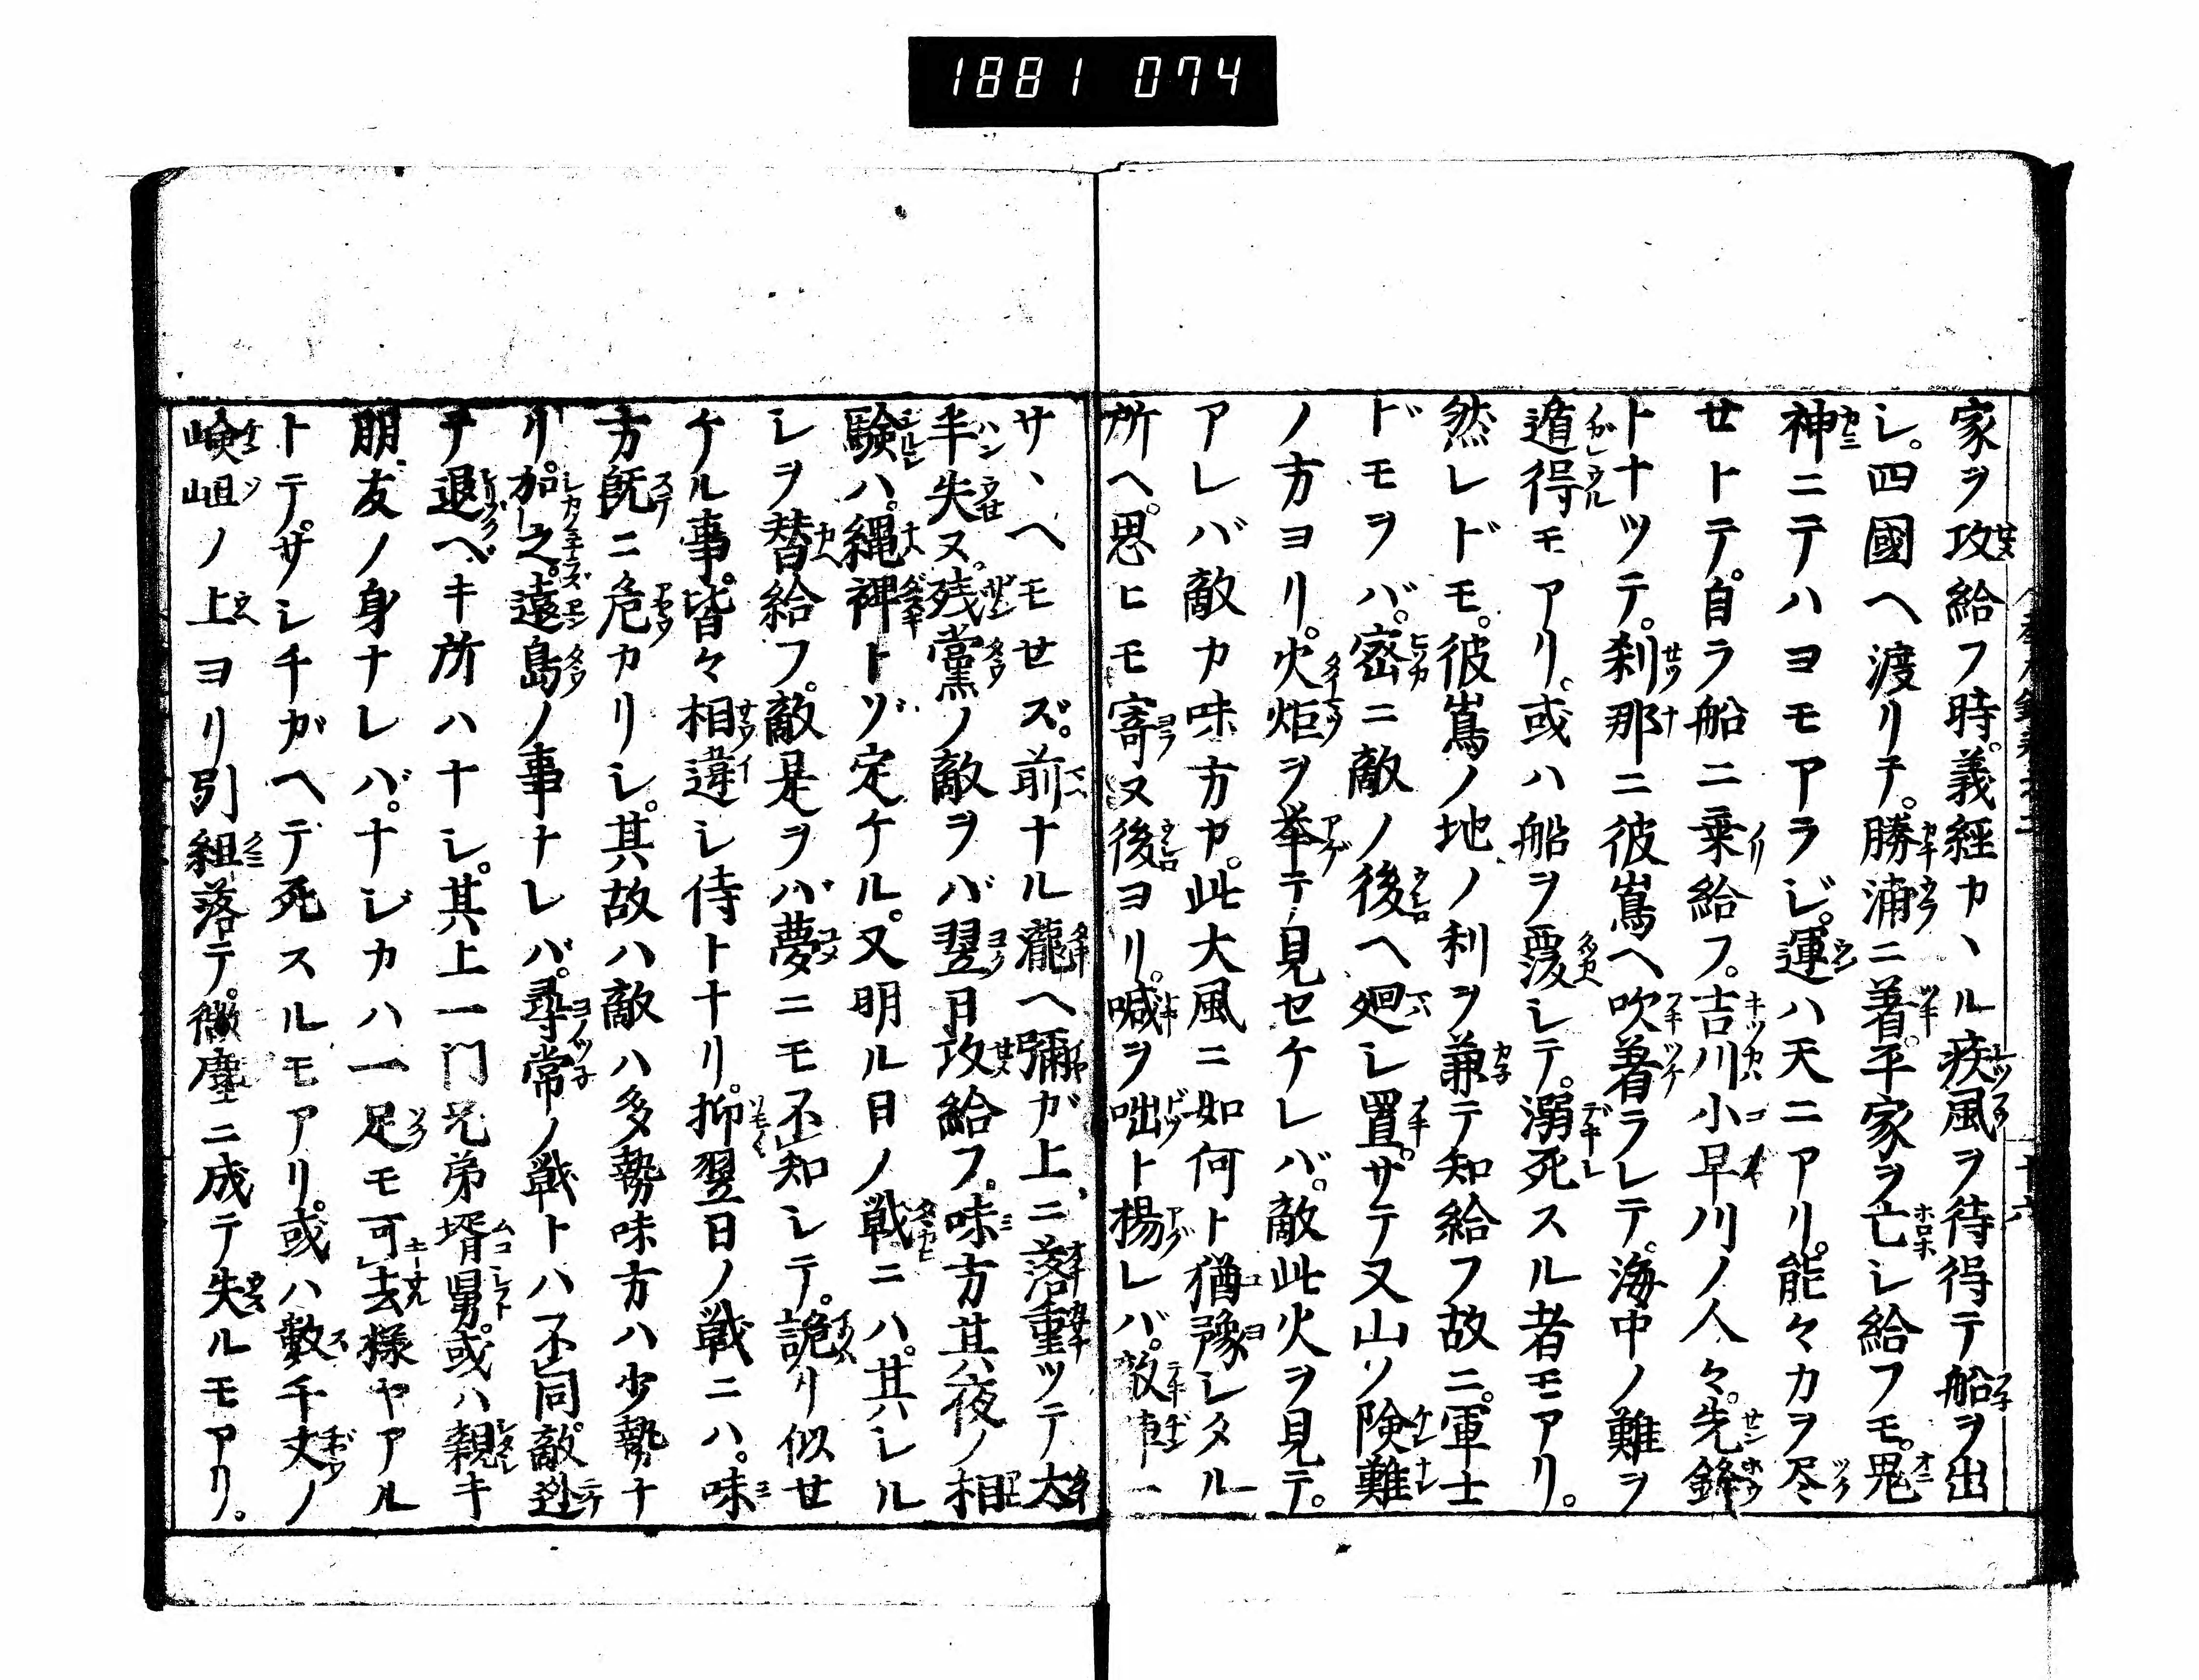 1881 074
家ヲ攻給フ時。義經カヽル疾風ヲ待得テ船ヲ出
シ。四國ヘ渡リテ。勝浦ニ着。平家ヲ亡シ給フモ。鬼
神ニテハヨモアラジ。運ハ天ニアリ。能々カヲ尽
せトテ。自ラ船ニ乗給フ。吉川小早川ノ人々。先鋒
トナツテ。刹那ニ彼嶌ヘ吹着ラレテ。海中ノ難ヲ
遁得モアリ。或ハ船ヲ覆シテ。溺死スル者モアリ。
然レドモ。彼嶌ノ地ノ利ヲ兼テ知給フ故ニ。軍士
ドモヲバ。密ニ敵ノ後ヘ廻シ置。サテ又山ソ険難
ノ方ヨリ。火炬ヲ挙テ見セケレバ。敵此火ヲ見テ。
アレバ敵カ味方ヤ。此大風ニ如何ト猶豫シタル
所ヘ。思ヒモ寄ヌ後ヨリ。喊ヲ咄ト揚レバ。敵
サヽヘモせズ。前ナル瀧ヘ彌ガ上ニ落重ツテ大
半失ヌ。残黨ノ敵ヲバ翌日攻給フ。味方其夜ノ相
驗ハ。縄裨トヅ定ケル。又明ル日ノ戦ニハ。其シル
シヲ替給フ。敵是ヲバ夢ニモ不知シテ。詭リ似せ
ケル事。皆々相違シ侍トナリ。抑翌日ノ戦ニハ。味
方既ニ危カリシ。其故ハ敵ハ多勢味方ハ少勢ナ
リ。加之。遠島ノ事ナレバ。尋常ノ戦トハ不同。敵逃
テ退ヘキ所ハナシ。其上一門兄弟壻舅。或ハ親キ
朋友ノ身ナレバ。ナジカハ一足モ可去様ヤアル
トテ。サシチガヘテ死スルモアリ。或ハ數千丈ノ
嶮岨ノ上ヨリ引組落テ。微塵ニ成テ失ルモアリ。